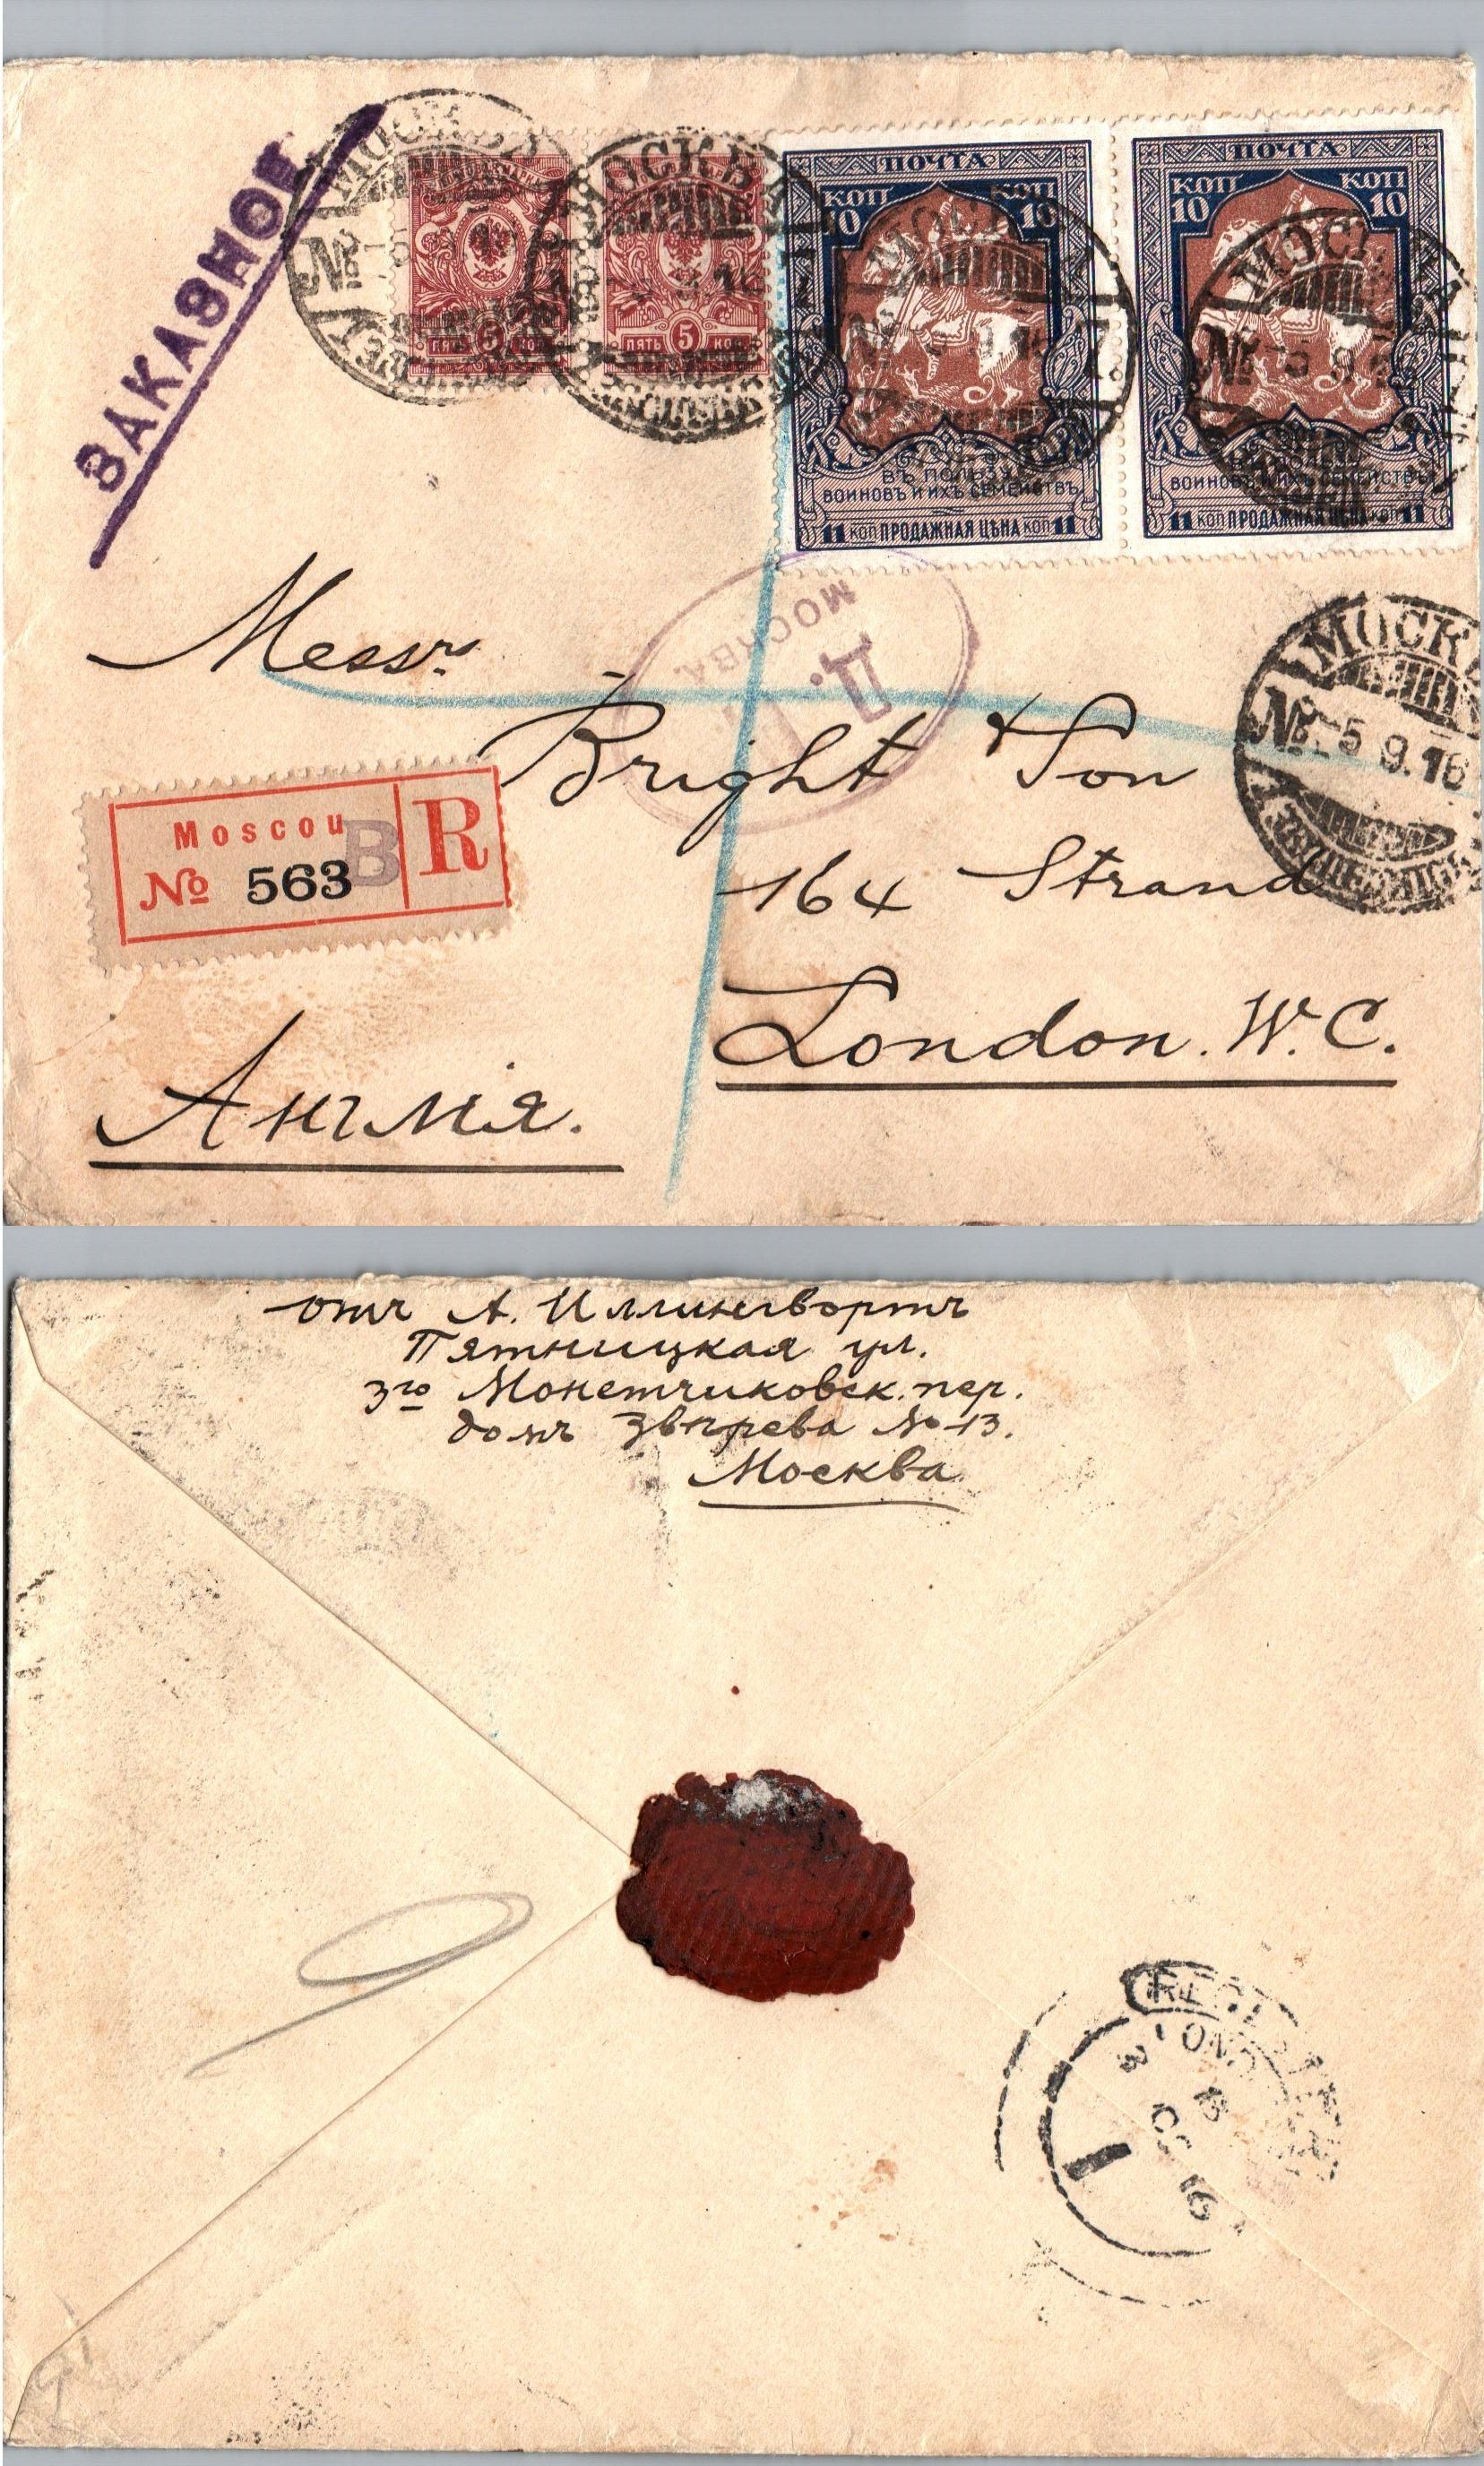 ЗАКАЗНОЕ
МОСКВА
№
ПЯТЬ 5 КОП
МОСКВА
16
ПЯТЬ 5 КОП.
ПОЧТА
КОП КОП
10 10
МОСКВА
№ 7
ВЪ ПОЛЬЗУ
ВОИНОВЪ И ИХЪ СЕМЕЙСТВЪ
11 КОП ПРОДАЖНАЯ ЦѢНА КОП 11
ПОЧТА
КОП КОП
10 10
МОСКВА
№ -5 9
ВОИНОВЪ И ИХЪ СЕМЕЙСТВЪ
11 КОП ПРОДАЖНАЯ ЦѢНА КОП 11
МОСКВА.
Д.
МОСКВА
№ -5 9.16
Messrs
Bright & Son
164 Strand
London. W.C.
Moscou B R
№ 563
Англія.
отъ А. Иллингвортъ
Пятницкая ул.
3го Монетчиковск. пер.
домъ Звѣрева № 13.
Москва
REGISTERED
LONDON
3
OC 16